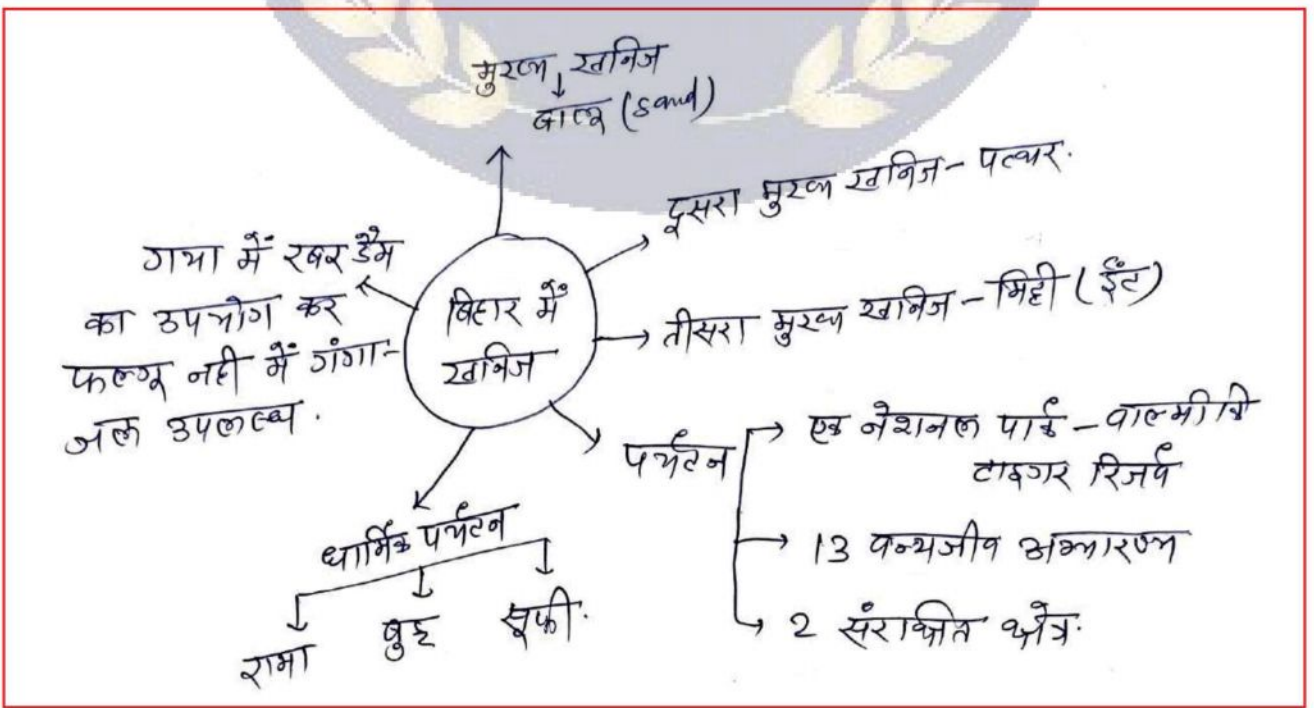 मुख्य खनिज
बालू (Sand)
दूसरा मुख्य खनिज - पत्थर.
गया में रबर डैम
का उपयोग कर
फल्गू नदी में गंगा-
जल उपलब्ध.
बिहार में
खनिज
तीसरा मुख्य खनिज - मिट्टी (ईंट)
पर्यटन
एक नेशनल पार्क - वाल्मीकि
टाइगर रिजर्व
13 वन्यजीव अभ्यारण्य
2 संरक्षित क्षेत्र.
धार्मिक पर्यटन
रामा
बुद्ध
सूफी.